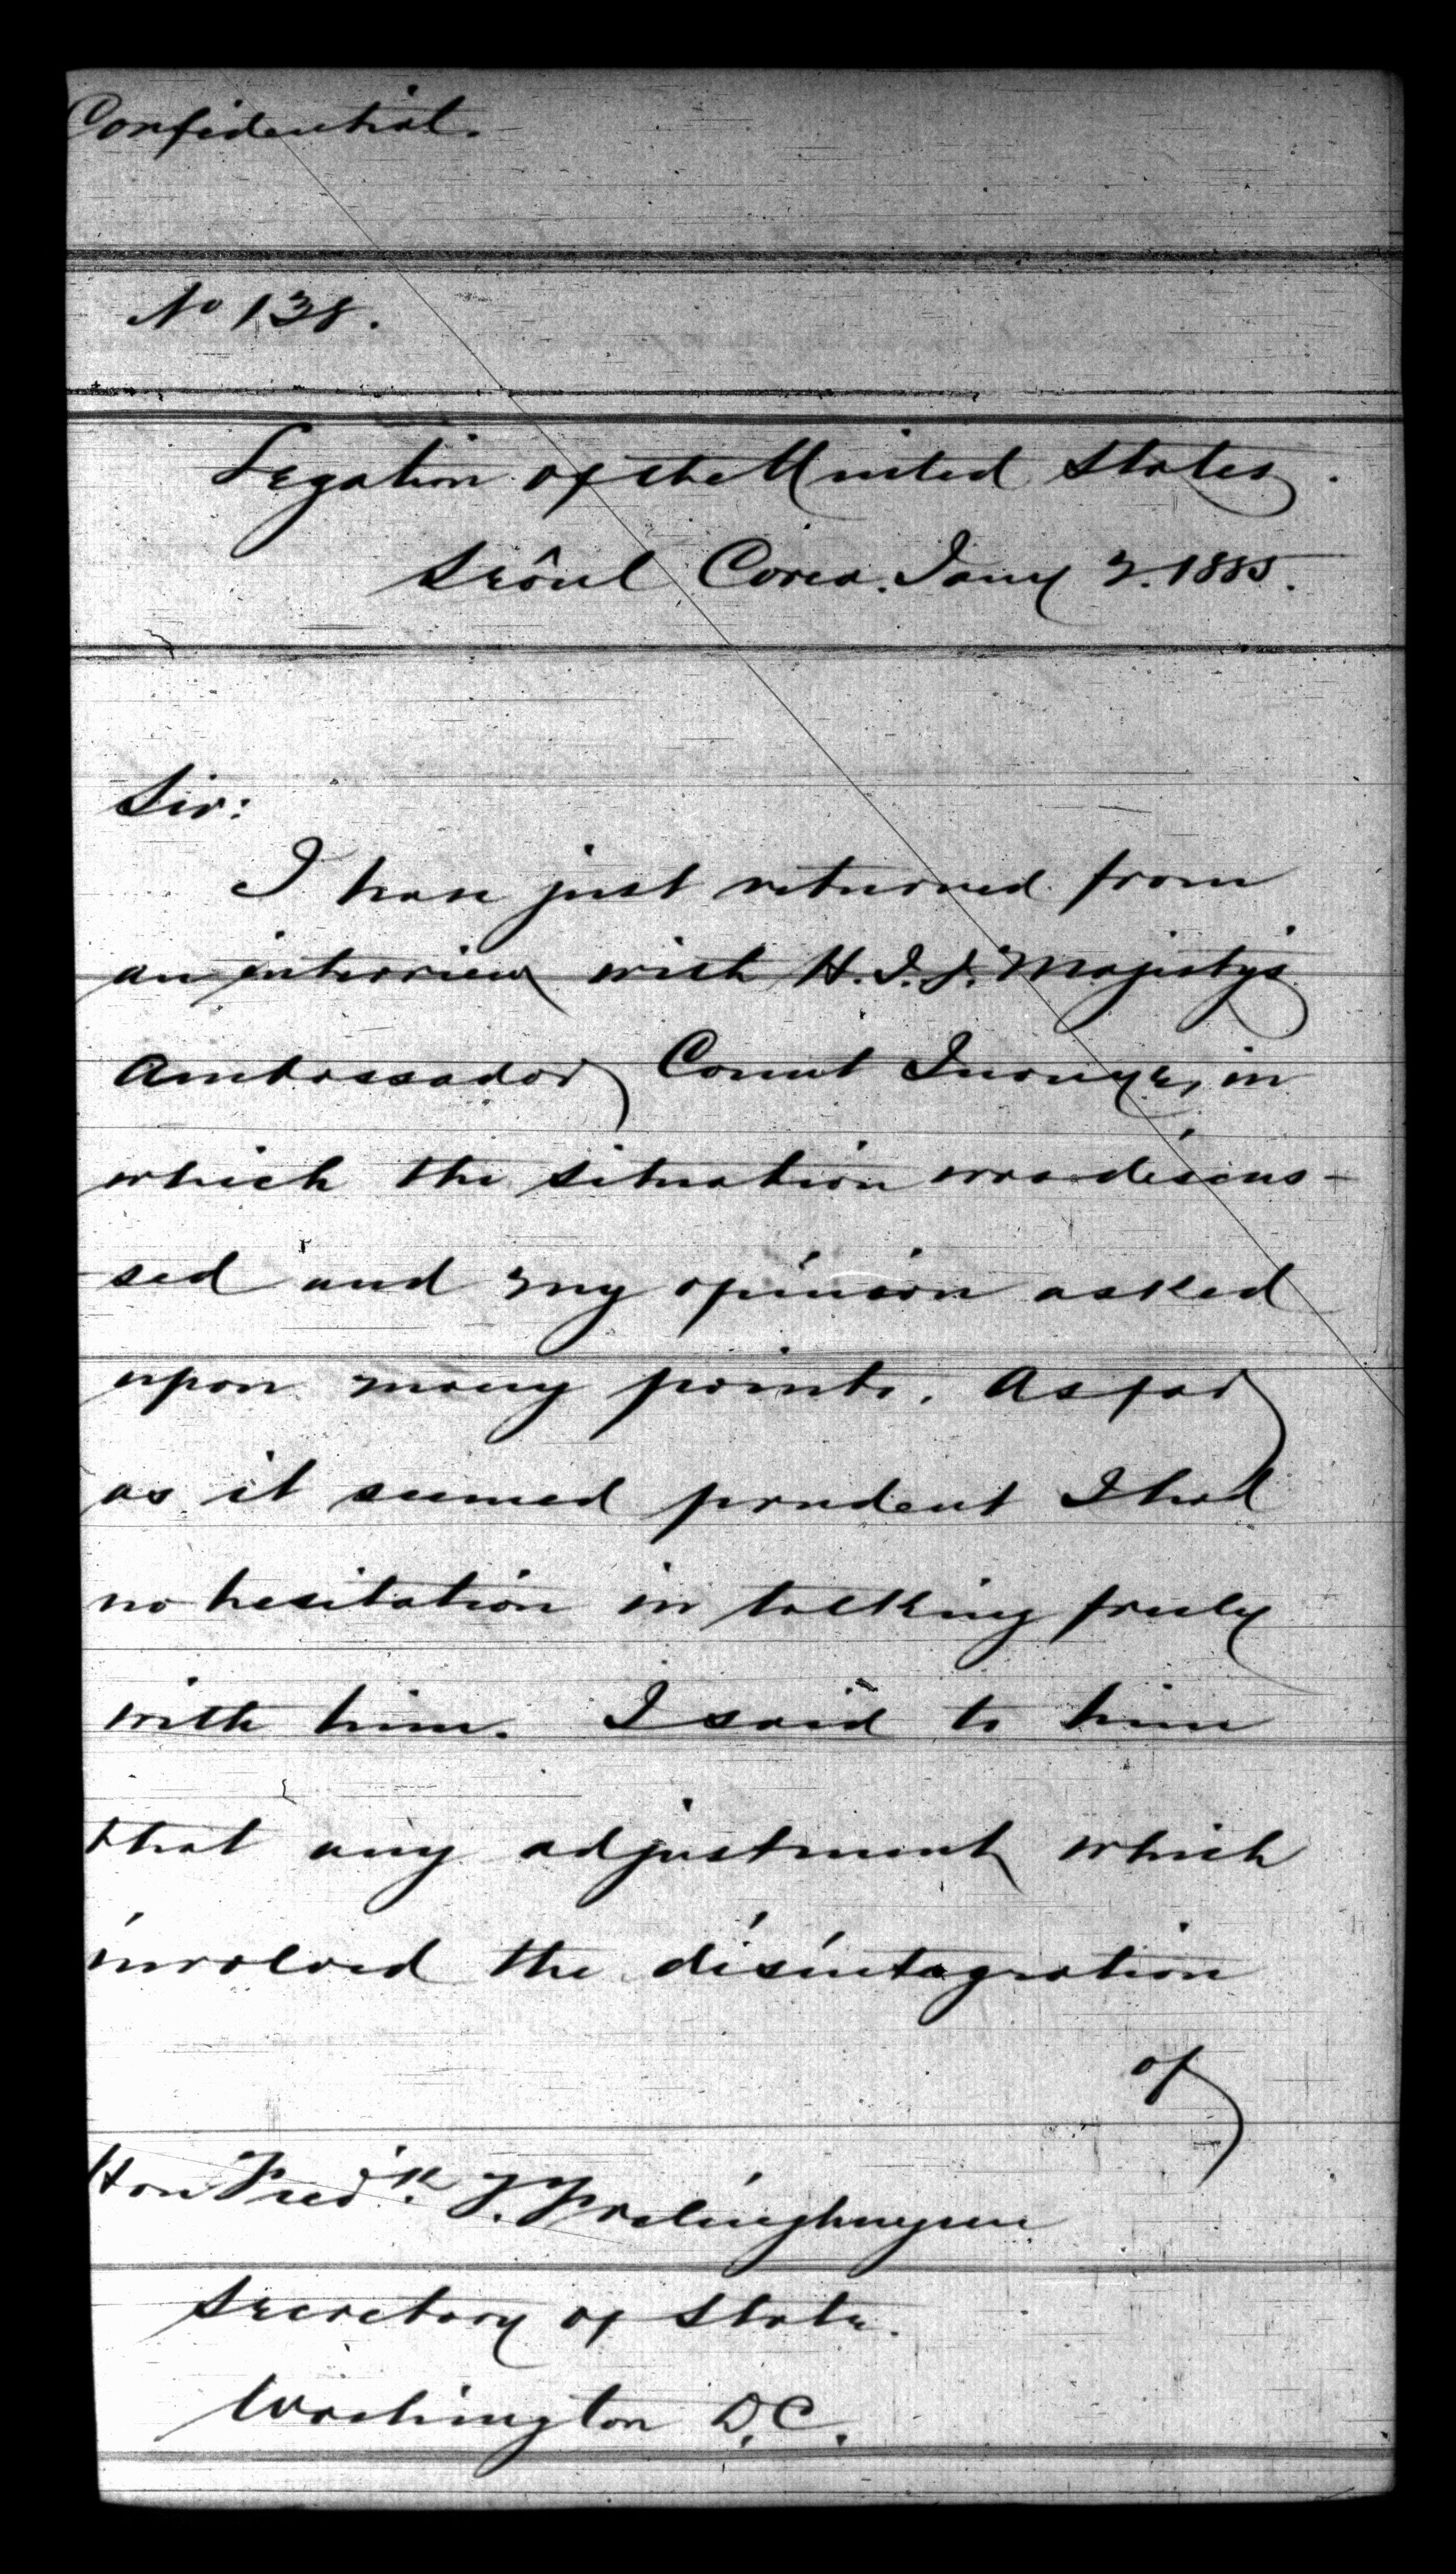 Confidential.
No 138.
Legation of the United States.
Seôul Corea. Jany 2. 1885.
Sir:
I have just returned from
an interview with H.I.J. Majesty's
Ambassador Count Inouye, in
which the situation was discus-
sed and my opinion asked
upon many points. As far
as it seemed prudent I had
no hesitation in talking freely
with him. I said to him
that any adjustment which
involved the disintegration
of
Hon Fred'k. T. Frelinghuysen
Secretary of State.
Washington D.C.